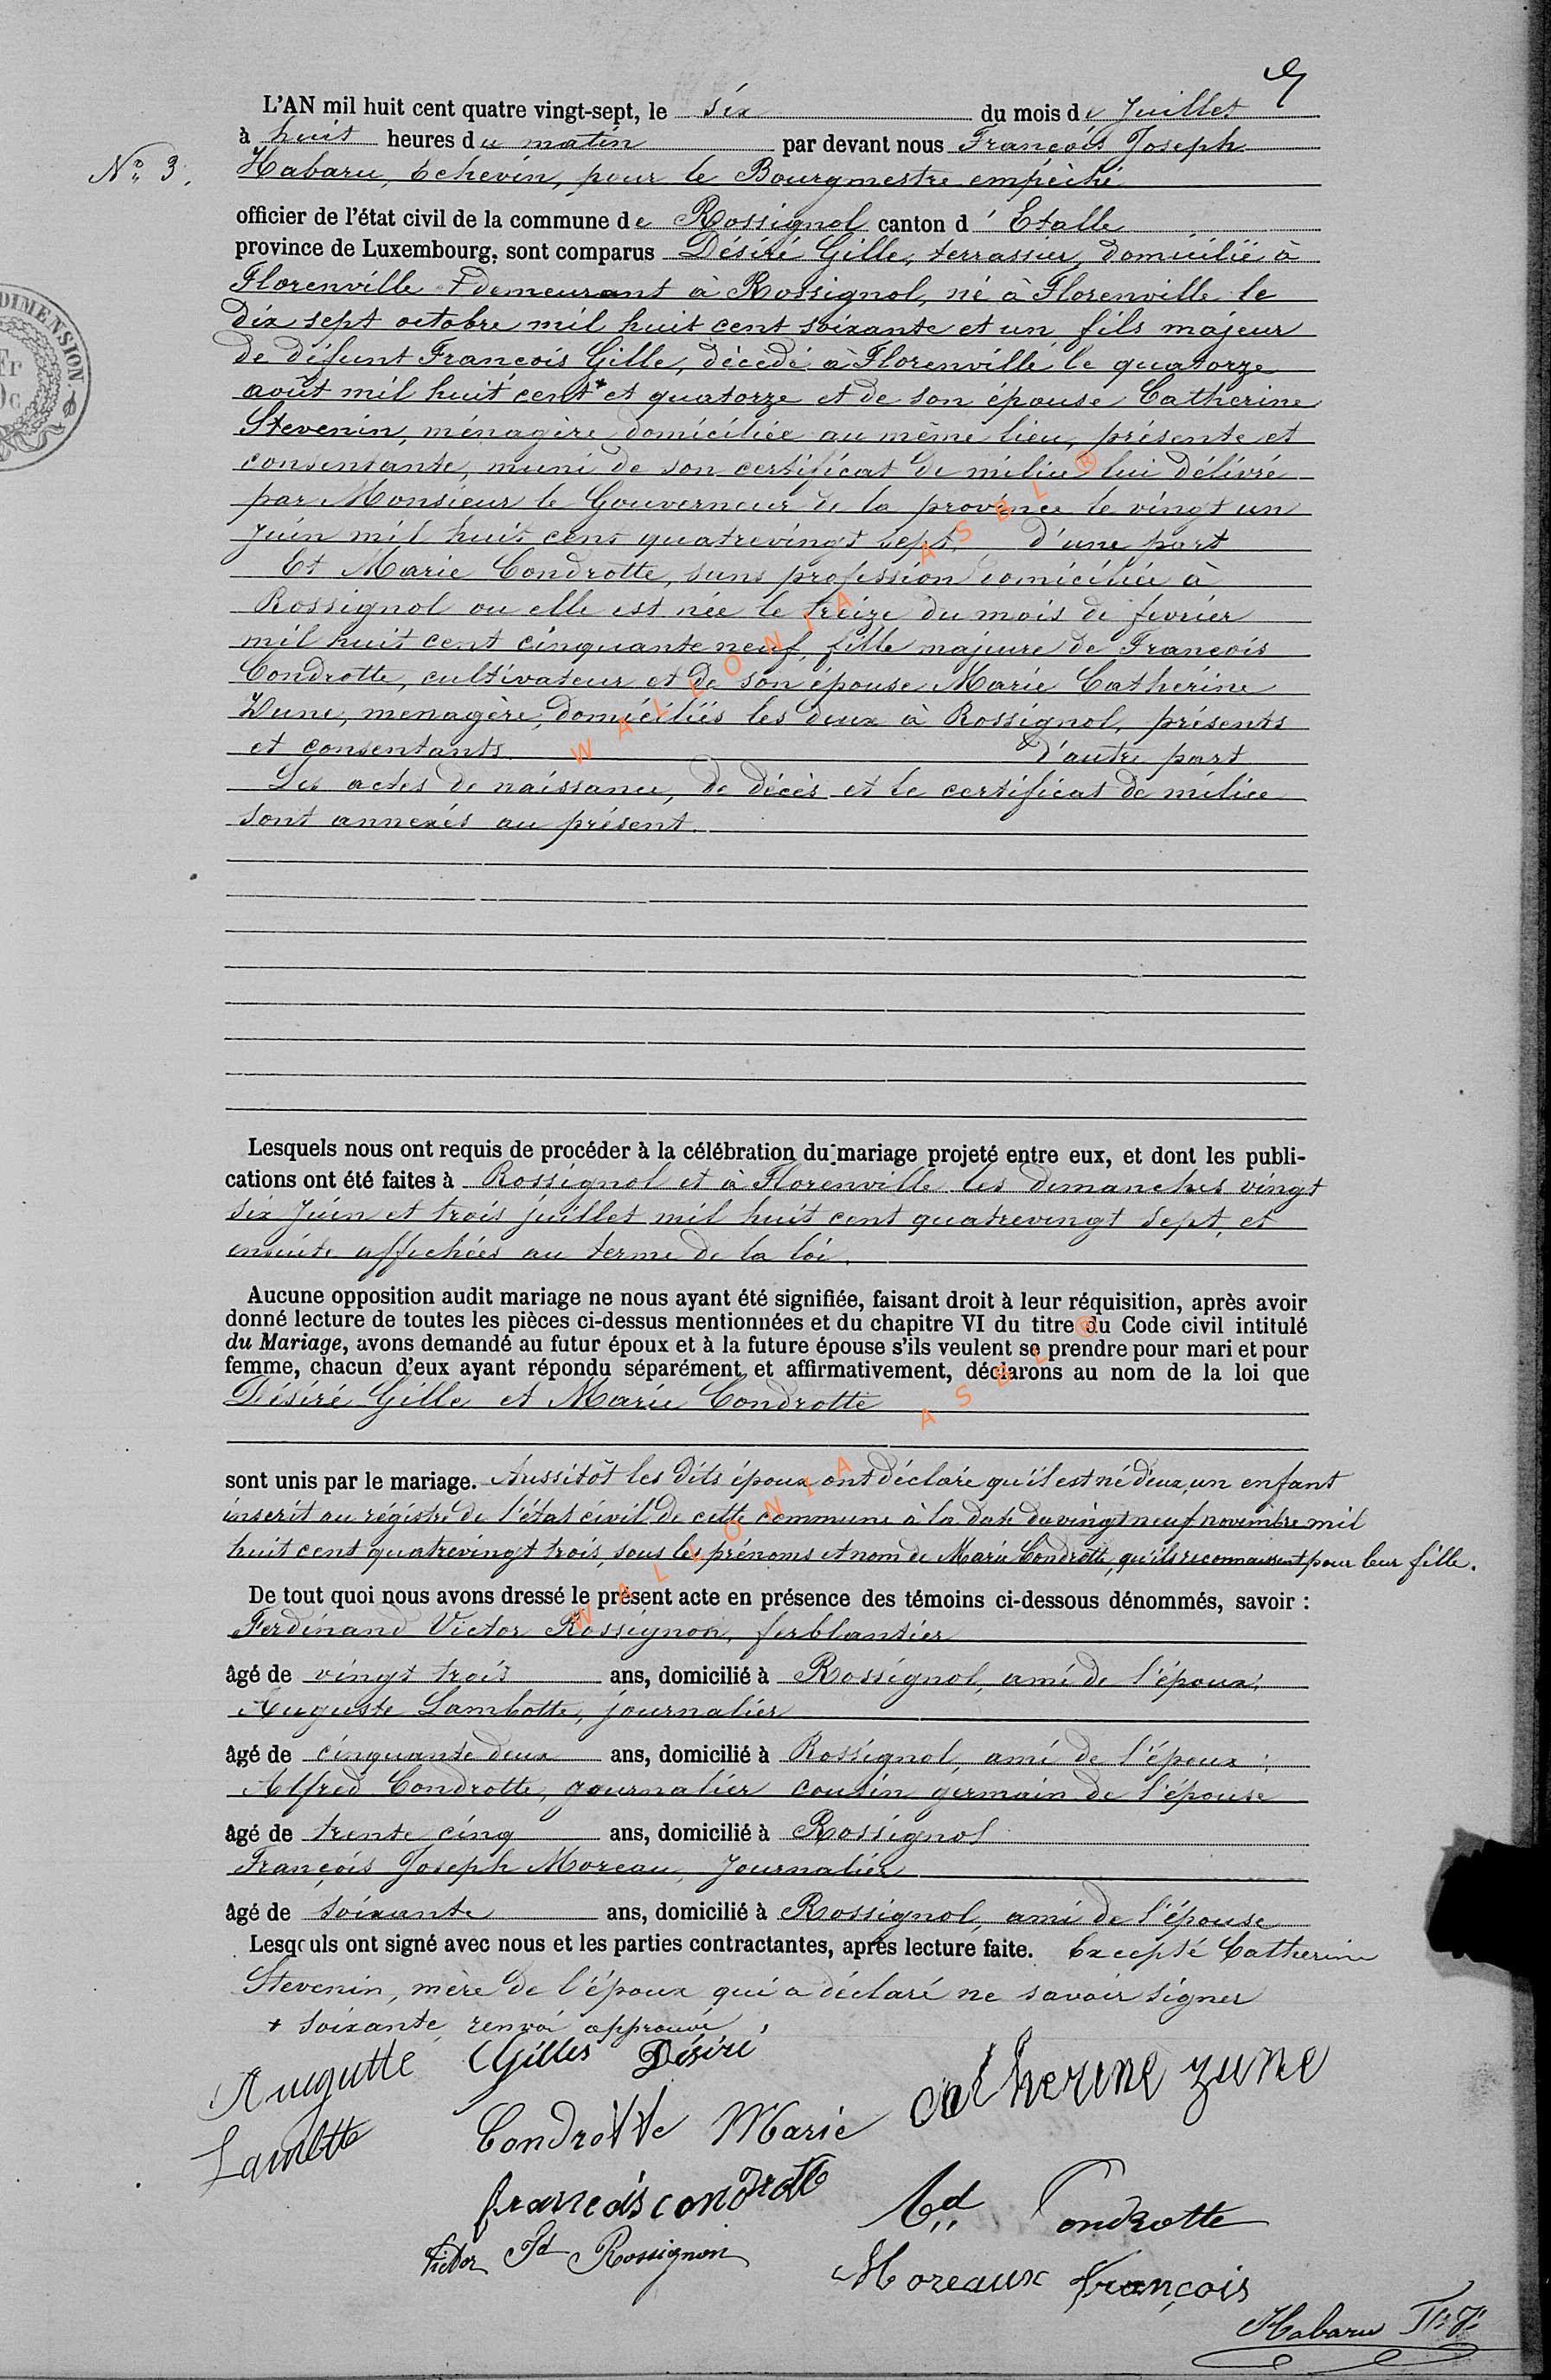 L'AN mil huit cent quatre vingt-sept, le six du mois de Juillet
à huit heures du matin par devant nous François Joseph
N° 3. Habaru, Echevin, pour le Bourgmestre empêché
officier de l'état civil de la commune de Rossignol canton d'Etalle
province de Luxembourg, sont comparus Désiré Gille, terrassier, domicilié à
Florenville et demeurant à Rossignol, né à Florenville le
dix sept octobre mil huit cent soixante et un fils majeur
de défunt François Gille, décédé à Florenville le quatorze
août mil huit cent + et quatorze et de son épouse Catherine
Stevenin, ménagère domiciliée au même lieu, présente et
consentante, muni de son certificat de milice lui délivré
par Monsieur le Gouverneur de la province le vingt un
Juin mil huit cent quatrevingt sept, d'une part
Et Marie Condrotte, sans profession domiciliée à
Rossignol ou elle est née le treize du mois de fevrier
mil huit cent cinquante neuf, fille majeure de François
Condrotte, cultivateur et de son épouse Marie Catherine
Zune, menagère, domiciliés les deux à Rossignol, présents
et consentants. d'autre part
Les actes de naissance, de décès et le certificat de milice
sont annexés au présent.
Lesquels nous ont requis de procéder à la célébration du mariage projeté entre eux, et dont les publi-
cations ont été faites à Rossignol et à Florenville les dimanches vingt
six Juin et trois juillet mil huit cent quatrevingt sept, et
ensuite affichées au terme de la loi.
Aucune opposition audit mariage ne nous ayant été signifiée, faisant droit à leur réquisition, après avoir
donné lecture de toutes les pièces ci-dessus mentionnées et du chapitre VI du titre du Code civil intitulé
du Mariage, avons demandé au futur époux et à la future épouse s'ils veulent se prendre pour mari et pour
femme, chacun d'eux ayant répondu séparément et affirmativement, déclarons au nom de la loi que
Désiré Gille et Marie Condrotte
sont unis par le mariage. Aussitôt les dits époux ont déclaré qu'il est né d'eux, un enfant
inscrit au régistre de l'état civil de cette commune à la date du vingt neuf novembre mil
huit cent quatrevingt trois, sous les prénoms et nom de Marie Condrotte, qu'ils reconnaissent pour leur fille.
De tout quoi nous avons dressé le présent acte en présence des témoins ci-dessous dénommés, savoir :
Ferdinand Victor Rossignon, ferblantier
âgé de vingt trois ans, domicilié à Rossignol, ami de l'époux;
Auguste Lambotte, journalier
âgé de cinquante deux ans, domicilié à Rossignol, ami de l'époux;
Alfred Condrotte, journalier cousin germain de l'épouse
âgé de trente cinq ans, domicilié à Rossignol
François Joseph Moreau, Journalier
âgé de soixante ans, domicilié à Rossignol, ami de l'épouse
Lesquels ont signé avec nous et les parties contractantes, après lecture faite. Excepté Catherine
Stevenin, mère de l'époux qui a déclaré ne savoir signer
+ soixante, renvoi approuvé
Gilles Désiré
Condrotte Marie catherine zune
françois condrotte
Condrotte
Victor Fd Rossignon
Moreaux françois
Habaru F. J.
WALLONIA ASBL ®
WALLONIA ASBL ®
DIMENSION